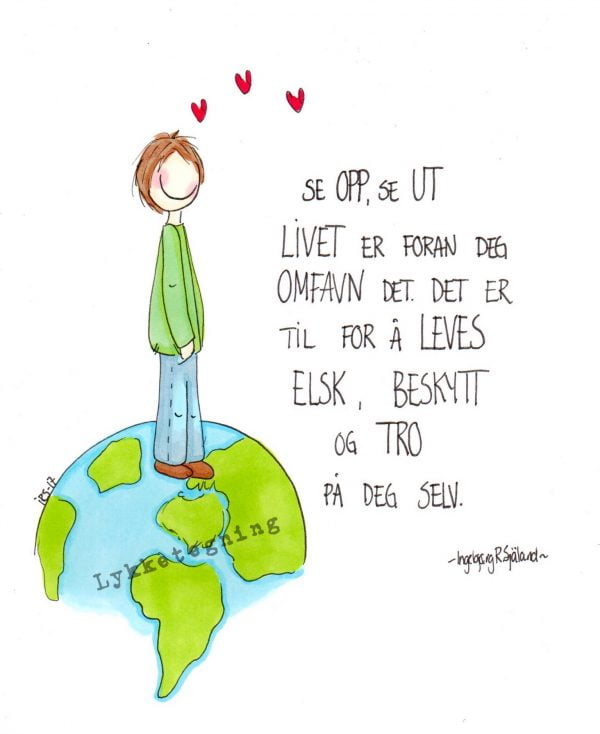 SE OPP, SE UT
LIVET ER FORAN DEG
OMFAVN DET. DET ER
TIL FOR Å LEVES
ELSK, BESKYTT
OG TRO
PÅ DEG SELV.
Lykketegning